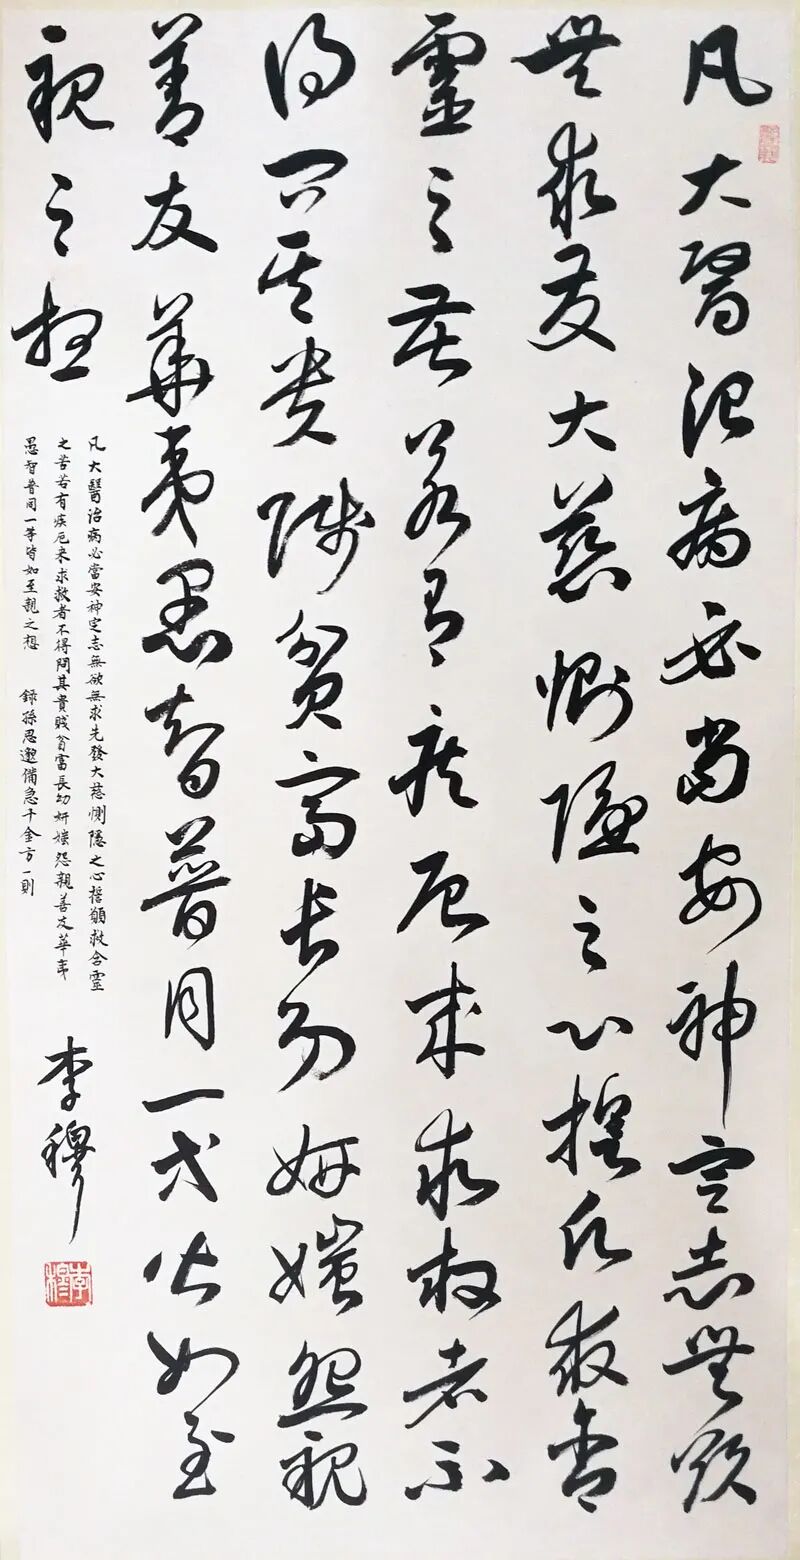 凡大醫治病必當安神定志無欲
無求發大慈惻隱之心誓願救含
靈之苦若有疾厄来求救者不
得問其貴賤貧富長幼妍媸怨親
善友華夷愚智普同一等皆如至
親之想
凡大醫治病必當安神定志無欲無求先發大慈惻隱之心誓願救含靈
之苦若有疾厄来求救者不得問其貴賤貧富長幼妍媸怨親善友華夷
愚智普同一等皆如至親之想 録孫思邈備急千金方一則
李穆
李穆